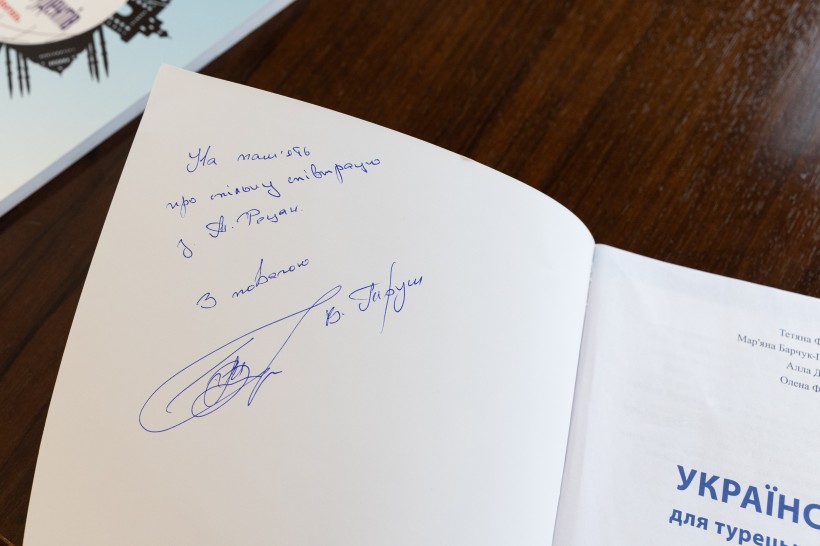 На пам'ять
про спільну співпрацю
З
З повагою
В.
Тетяна Ф
Мар'яна Барчук-Г
Алла Д
Олена Ф
УКРАЇНС
для турець